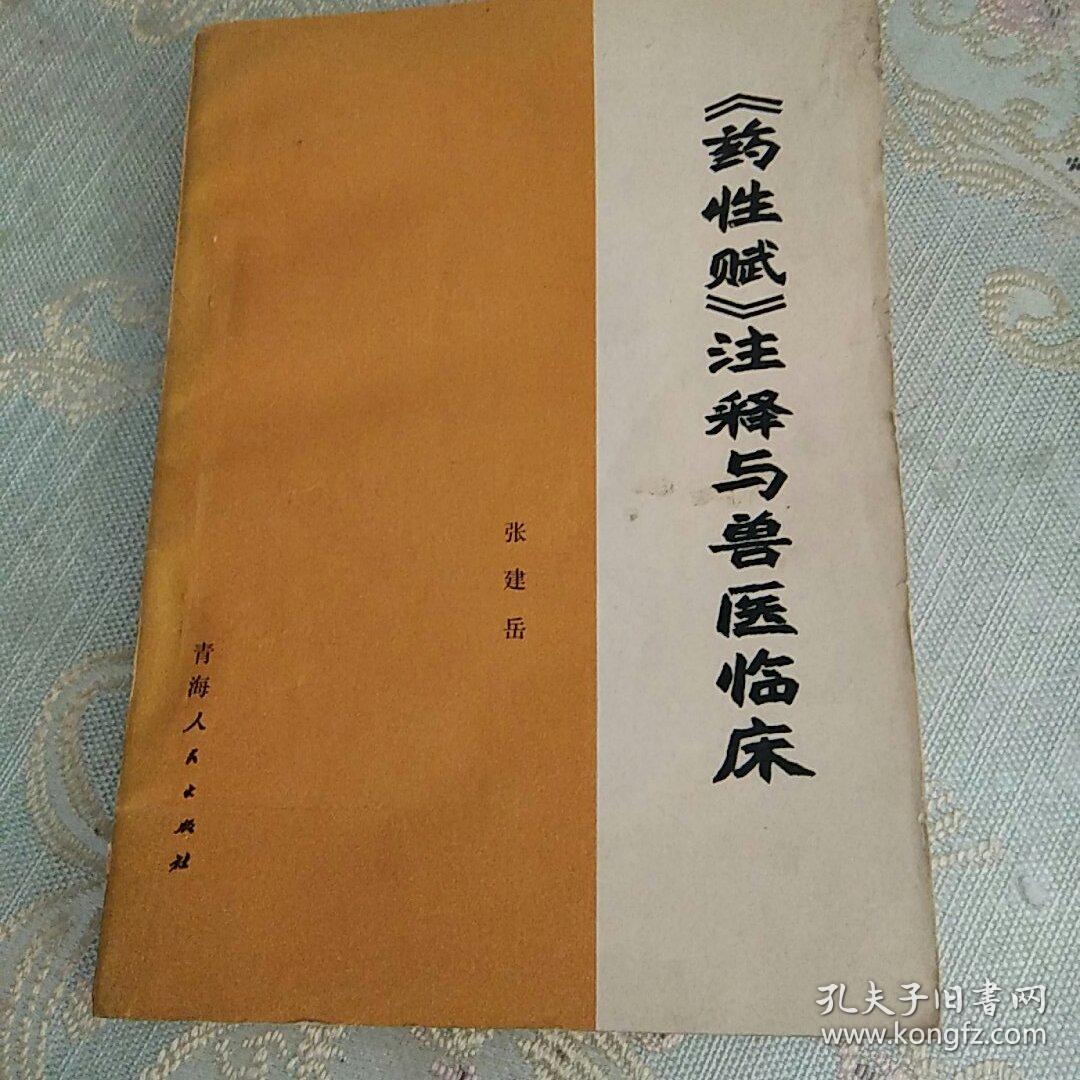 《药性赋》注释与兽医临床
张建岳
青海人民出版社
孔夫子旧書网
www.kongfz.com